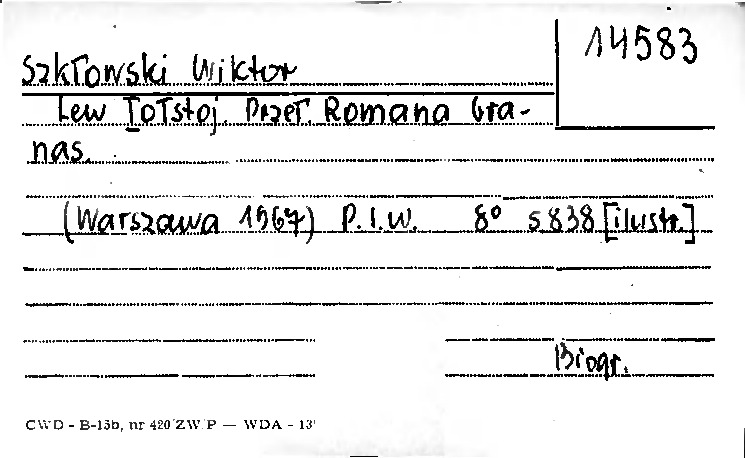 14583
Szkłowski Wiktor
Lew Tołstoj. Przeł. Romana Gra-
nas.
(Warszawa 1967) P.I.W. 8° s 838 [ilustr.]
Biogr.
CWD - B-15b, nr 420 ZW/P — WDA - 13